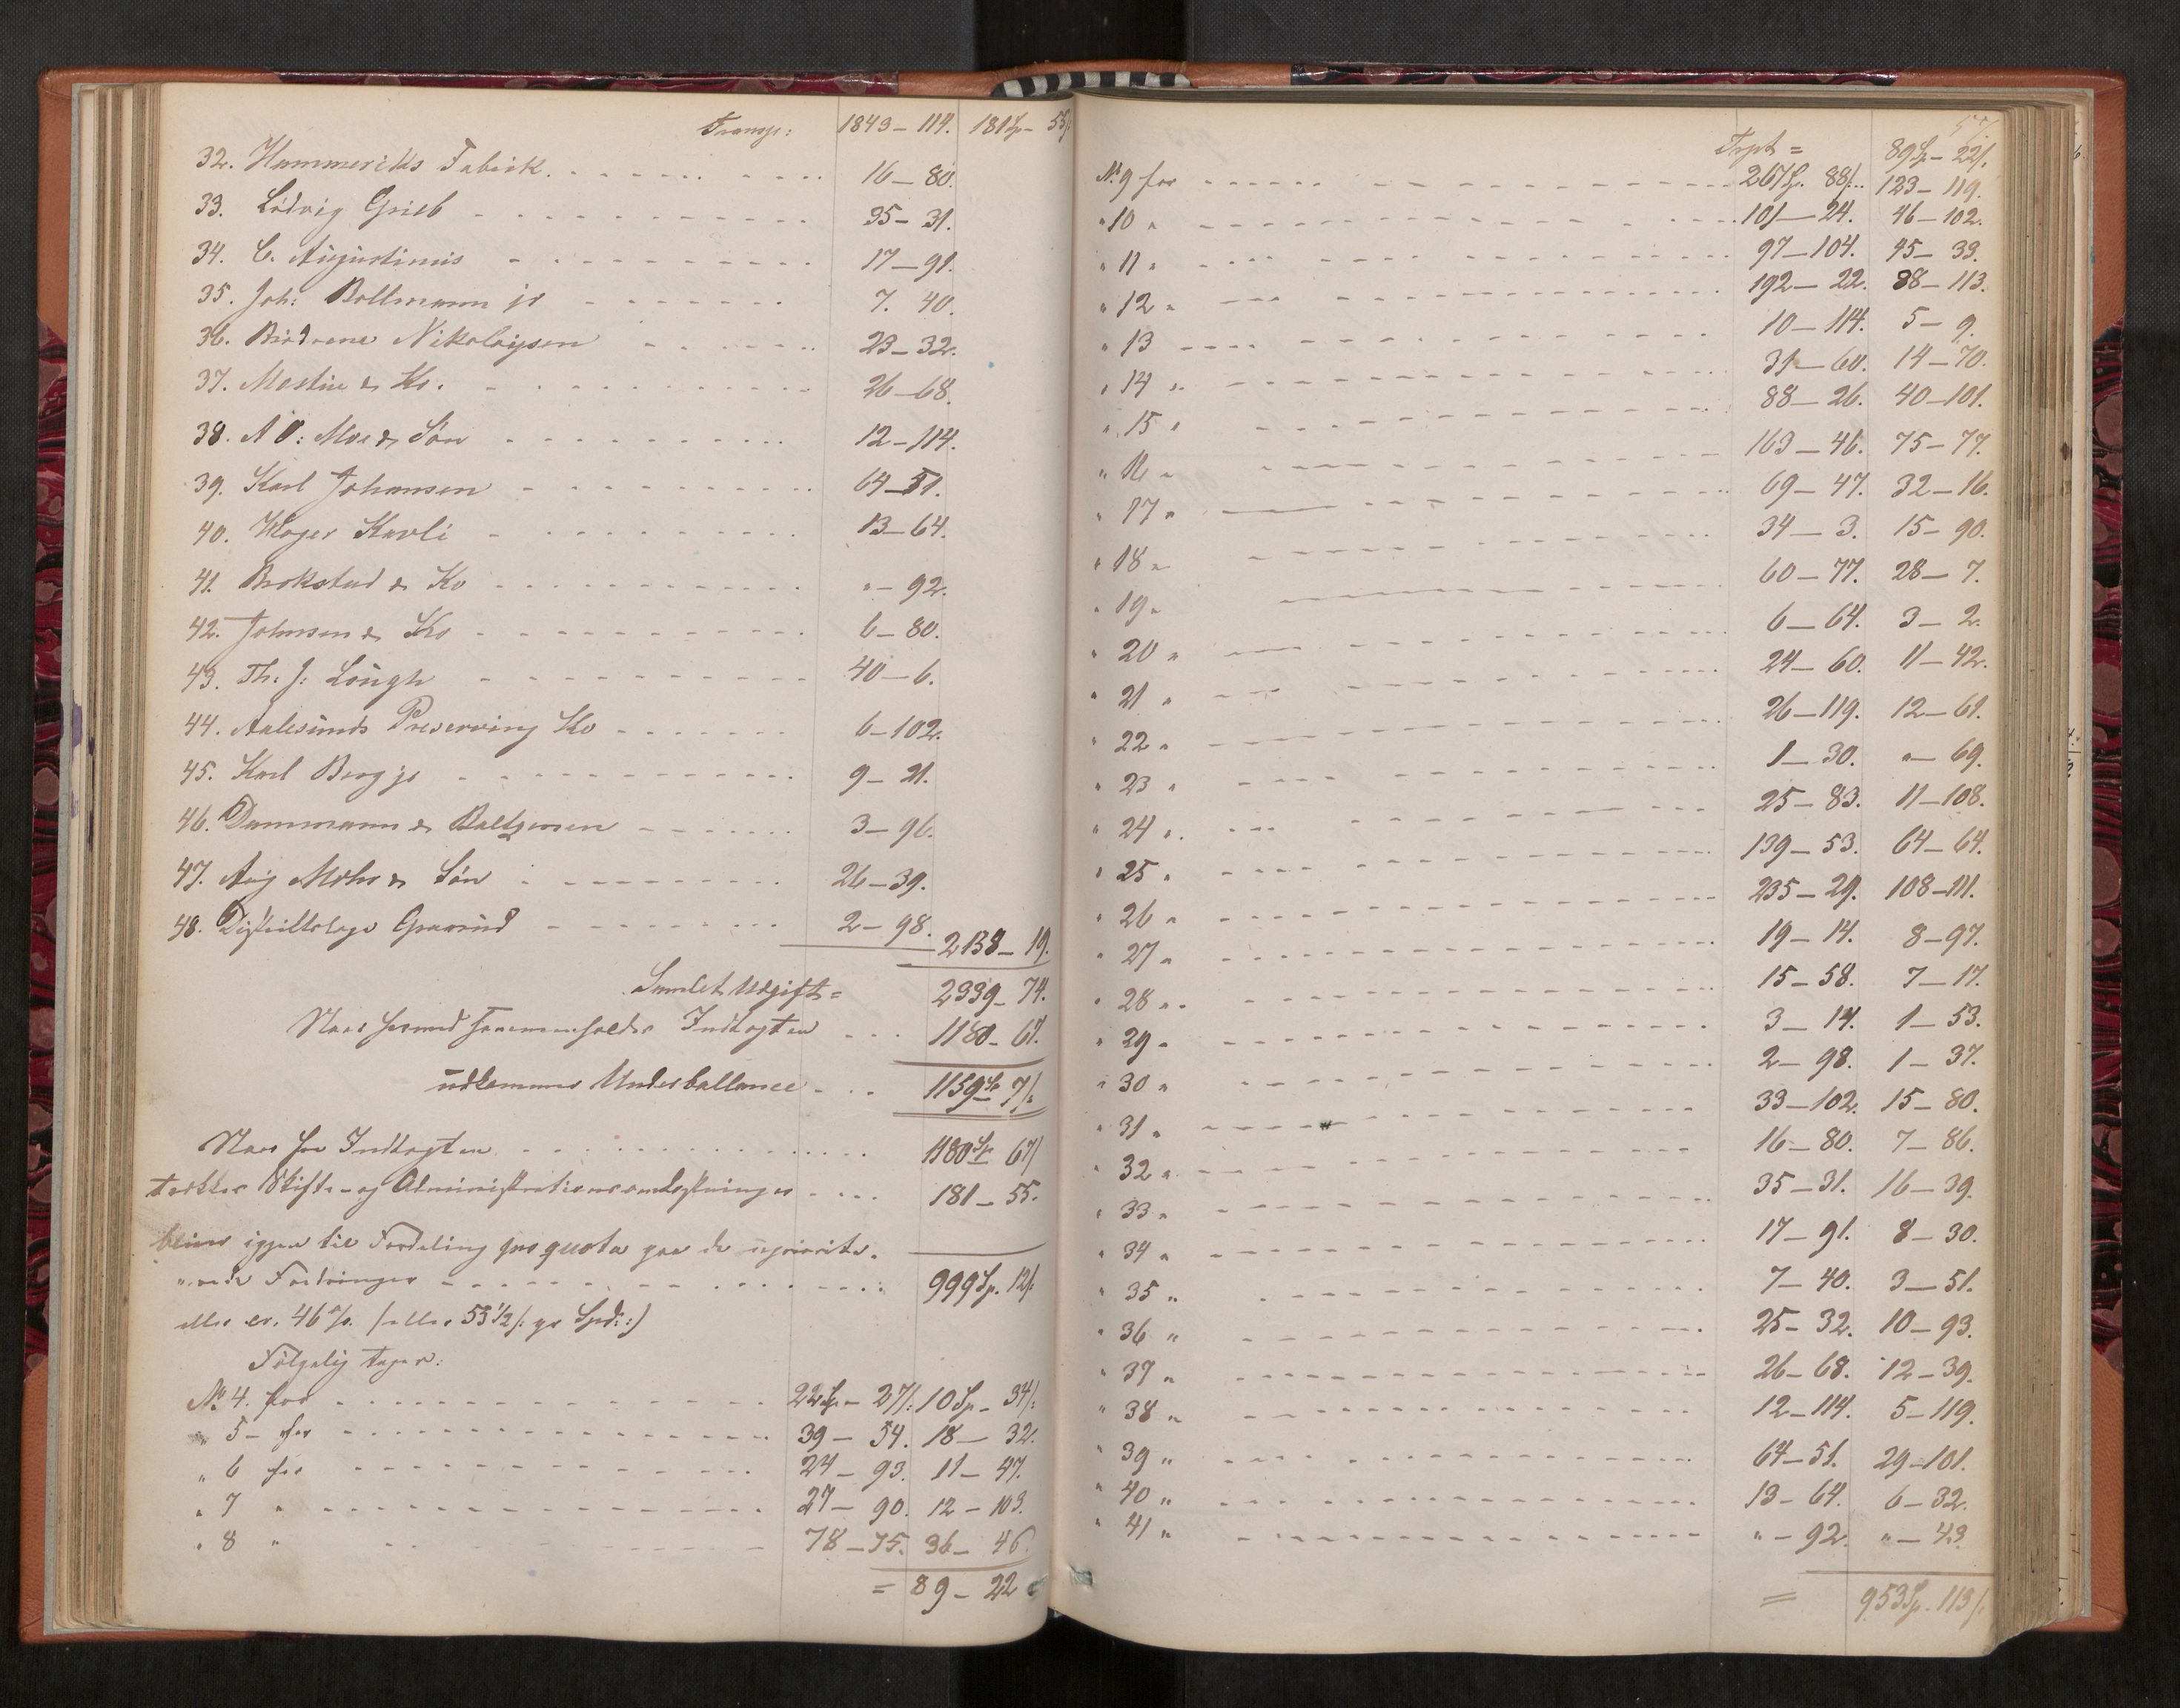 Transp: 1843 – 114. 181 Sp – 55/
32. Hammeriks Fabrik. 16 – 80.
33. Lúdvig Grieb 35 – 31.
34. C. Aúgústinús 17 – 91.
35. Joh: Bollmann jr 7. 40.
36. Brødrene Nikolaysen 23 – 32.
37. Mestue & Ko. 26 – 68.
38. A O: Moe & Søn 12 – 114.
39. Karl Johansen 64 – 51.
40. Hager Kavli 13 – 64.
41. Brokstad & Ko " – 92.
42. Johnsen & Ko 6 – 80.
43. Th: J: Lúngh 40 – 6.
44. Aalesúnds Preserving Ko 6 – 102.
45. Karl Berg jr 9 – 21.
46. Dammann & Baltzersen 3 – 96.
47. Aúg Mohr & Søn 26 – 39.
48. Distriktslæge Graarúd 2 – 98. 2158 – 19.
Samlet Udgift = 2339 – 74.
Naar hermed sammenholdes Indtægten 1180 – 67.
údkommer Underballance 1159 Sp 7/.
Naar fra Indtægten 1180 Sp 67/
trækkes Skifte- og Administrationsomkostninger 181 – 55.
bliver igjen til Fordeling pro quota paa de úpriorite-
rede Fordringer 999 Sp. 12/.
eller ca. 46 %. (eller 55 1/2 /. pr Spd:)
Følgelig tager:
No 4. for 22 Sp – 27/. 10 Sp – 34/.
" 5 – for 39 – 54. 18 – 32.
" 6 for 24 – 93. 11 – 47.
" 7 " 27 – 90. 12 – 103.
" 8 " 78 – 75. 36 – 46.
= 89 – 22
57/.
Trpt = 89 Sp – 22/.
No 9 for 267 Sp. 88/. 123 – 119.
" 10 " 101 – 24. 46 – 102.
" 11 " 97 – 104. 45 – 33.
" 12 " 192 – 22. 88 – 113.
" 13 10 – 114. 5 – 9.
" 14 " 31 – 60. 14 – 70.
" 15 " 88 – 26. 40 – 101.
" 16 " 163 – 46. 75 – 77.
" 17 " 69 – 47. 32 – 16.
" 18 " 34 – 3. 15 – 90.
" 19 " 60 – 77. 28 – 7.
" 20 " 6 – 64. 3 – 2.
" 21 " 24 – 60. 11 – 42.
" 22 " 26 – 119. 12 – 61.
" 23 " 1 – 30. " – 69.
" 24 " 25 – 83. 11 – 108.
" 25 " 139 – 53. 64 – 64.
" 26 " 235 – 29. 108 – 111.
" 27 " 19 – 14. 8 – 97.
" 28 " 15 – 58. 7 – 17.
" 29 " 3 – 14. 1 – 53.
" 30 " 2 – 98. 1 – 37.
" 31 " 33 – 102. 15 – 80.
" 32 " 16 – 80. 7 – 86.
" 33 " 35 – 31. 16 – 39.
" 34 " 17 – 91. 8 – 30.
" 35 " 7 – 40. 3 – 51.
" 36 " 25 – 32. 10 – 93.
" 37 " 26 – 68. 12 – 39.
" 38 " 12 – 114. 5 – 119.
" 39 " 64 – 51. 29 – 101.
" 40 " 13 – 64. 6 – 32.
" 41 " " – 92. " – 43.
= 953 Sp. 113/.